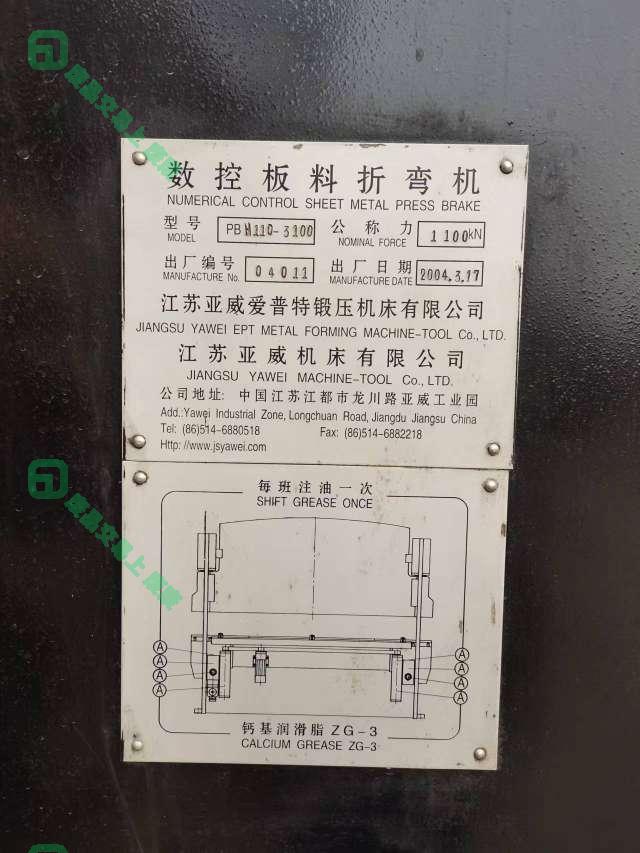 数控板料折弯机
NUMERICAL CONTROL SHEET METAL PRESS BRAKE
型号 PBH110-3100 公称力 1100kN
MODEL NOMINAL FORCE
出厂编号 04011 出厂日期 2004.3.17
MANUFACTURE No. MANUFACTURE DATE
江苏亚威爱普特锻压机床有限公司
JIANGSU YAWEI EPT METAL FORMING MACHINE-TOOL Co., LTD.
江苏亚威机床有限公司
JIANGSU YAWEI MACHINE-TOOL Co., LTD.
公司地址: 中国江苏江都市龙川路亚威工业园
Add.:Yawei Industrial Zone, Longchuan Road, Jiangdu Jiangsu China
Tel: (86)514-6880518 Fax: (86)514-6882218
Http: //www.jsyawei.com
每班注油一次
SHIFT GREASE ONCE
A A
A A
A A
A A
钙基润滑脂 ZG-3
CALCIUM GREASE ZG-3